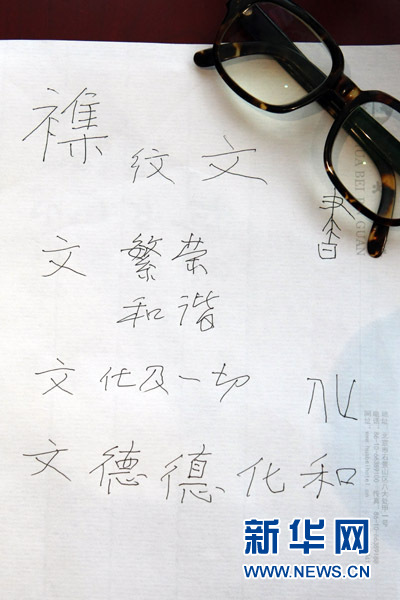 襍
纹 文
書
文 繁荣
和谐
文化及一切
化
文 德 德 化 和
新华网
WWW.NEWS.CN